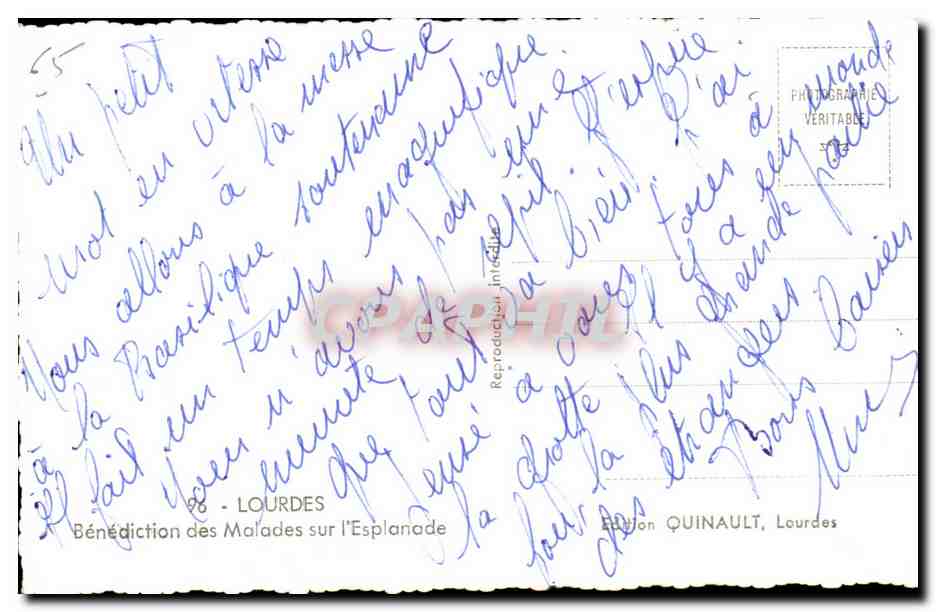 65
Un petit
mot en vitesse
Nous allons à la messe
à la Basilique souterraine
Il fait un temps magnifique.
Nous n'avons pas une
minute de répit. J'espère
que tout va bien. J'ai
pensé à vous tous à
la grotte. Il y a un monde
fou, la plus grande partie
des étrangers
Bons baisers
PHOTOGRAPHIE
VERITABLE
Reproduction interdite
CPAPHIL
96 - LOURDES
Bénédiction des Malades sur l'Esplanade
Edition QUINAULT, Lourdes